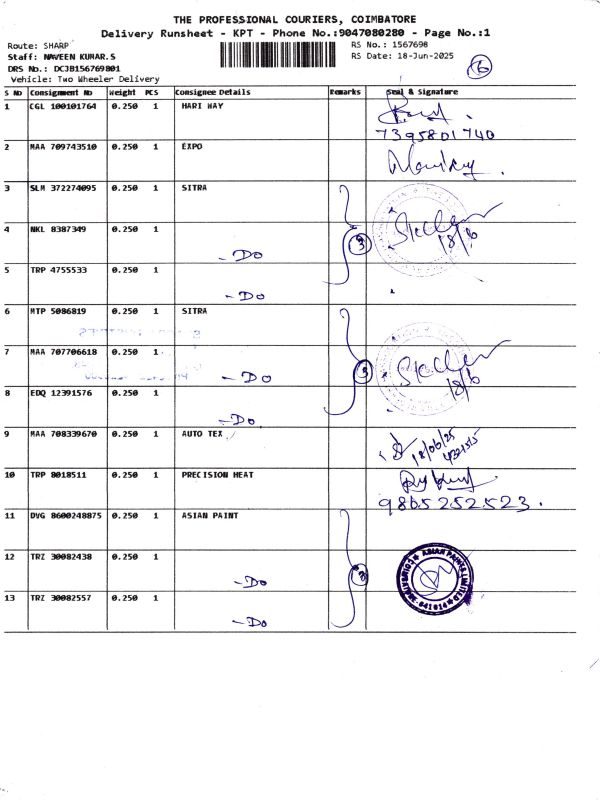 THE PROFESSIONAL COURIERS, COIMBATORE
Delivery Runsheet - KPT - Phone No.:9047080280 - Page No.:1
Route: SHARP
RS No.: 1567698
Staff: NAVEEN KUMAR.S
RS Date: 18-Jun-2025
DRS No.: DC3B156769801
6
Vehicle: Two Wheeler Delivery
S No Consignment No Weight PCS Consignee Details Remarks Seal & Signature
1 CGL 100101764 0.250 1 HARI WAY
7395801740
2 MAA 709743510 0.250 1 EXPO
3 SLM 372274095 0.250 1 SITRA
4 NKL 8387349 0.250 1
- Do 3 18/6
5 TRP 4755533 0.250 1
- Do
6 MTP 5086819 0.250 1 SITRA
7 MAA 707706618 0.250 1
- Do 3 18/6
8 EDQ 12391576 0.250 1
- Do
9 MAA 708339670 0.250 1 AUTO TEX
18/06/25
10 TRP 8018511 0.250 1 PRECISION HEAT
9865252523.
11 DVG 8600248875 0.250 1 ASIAN PAINT
12 TRZ 30082438 0.250 1
- Do
ASIAN PAINTS LIMITED
COIMBATORE - 641014
13 TRZ 30082557 0.250 1
- Do